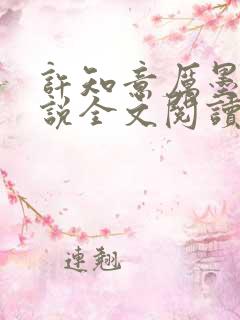 許知意厲墨
說全文閱讀
連翹